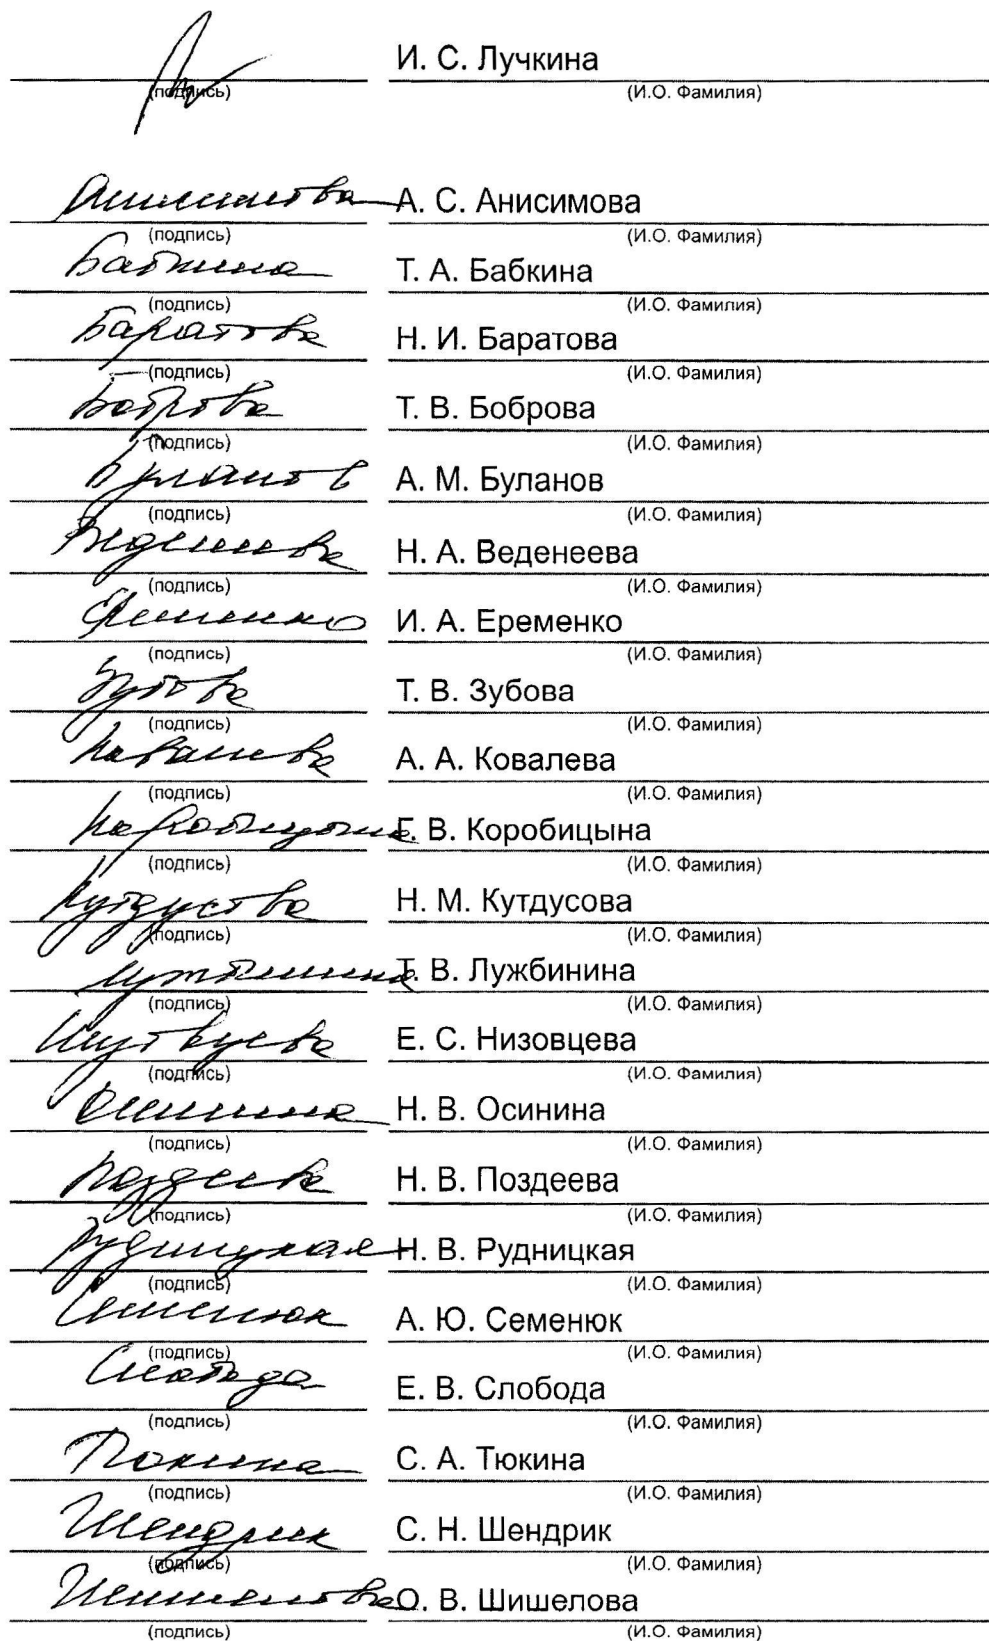 И. С. Лучкина
(подпись) (И.О. Фамилия)
Анисимова А. С. Анисимова
(подпись) (И.О. Фамилия)
Бабкина Т. А. Бабкина
(подпись) (И.О. Фамилия)
Баратова Н. И. Баратова
(подпись) (И.О. Фамилия)
Боброва Т. В. Боброва
(подпись) (И.О. Фамилия)
Буланов А. М. Буланов
(подпись) (И.О. Фамилия)
Веденеева Н. А. Веденеева
(подпись) (И.О. Фамилия)
Еременко И. А. Еременко
(подпись) (И.О. Фамилия)
Зубова Т. В. Зубова
(подпись) (И.О. Фамилия)
Ковалева А. А. Ковалева
(подпись) (И.О. Фамилия)
Коробицына Г. В. Коробицына
(подпись) (И.О. Фамилия)
Кутдусова Н. М. Кутдусова
(подпись) (И.О. Фамилия)
Лужбинина Т. В. Лужбинина
(подпись) (И.О. Фамилия)
Е. С. Низовцева
(подпись) (И.О. Фамилия)
Осинина Н. В. Осинина
(подпись) (И.О. Фамилия)
Поздеева Н. В. Поздеева
(подпись) (И.О. Фамилия)
Рудницкая Н. В. Рудницкая
(подпись) (И.О. Фамилия)
Семенюк А. Ю. Семенюк
(подпись) (И.О. Фамилия)
Слобода Е. В. Слобода
(подпись) (И.О. Фамилия)
Тюкина С. А. Тюкина
(подпись) (И.О. Фамилия)
Шендрик С. Н. Шендрик
(подпись) (И.О. Фамилия)
Шишелова О. В. Шишелова
(подпись) (И.О. Фамилия)